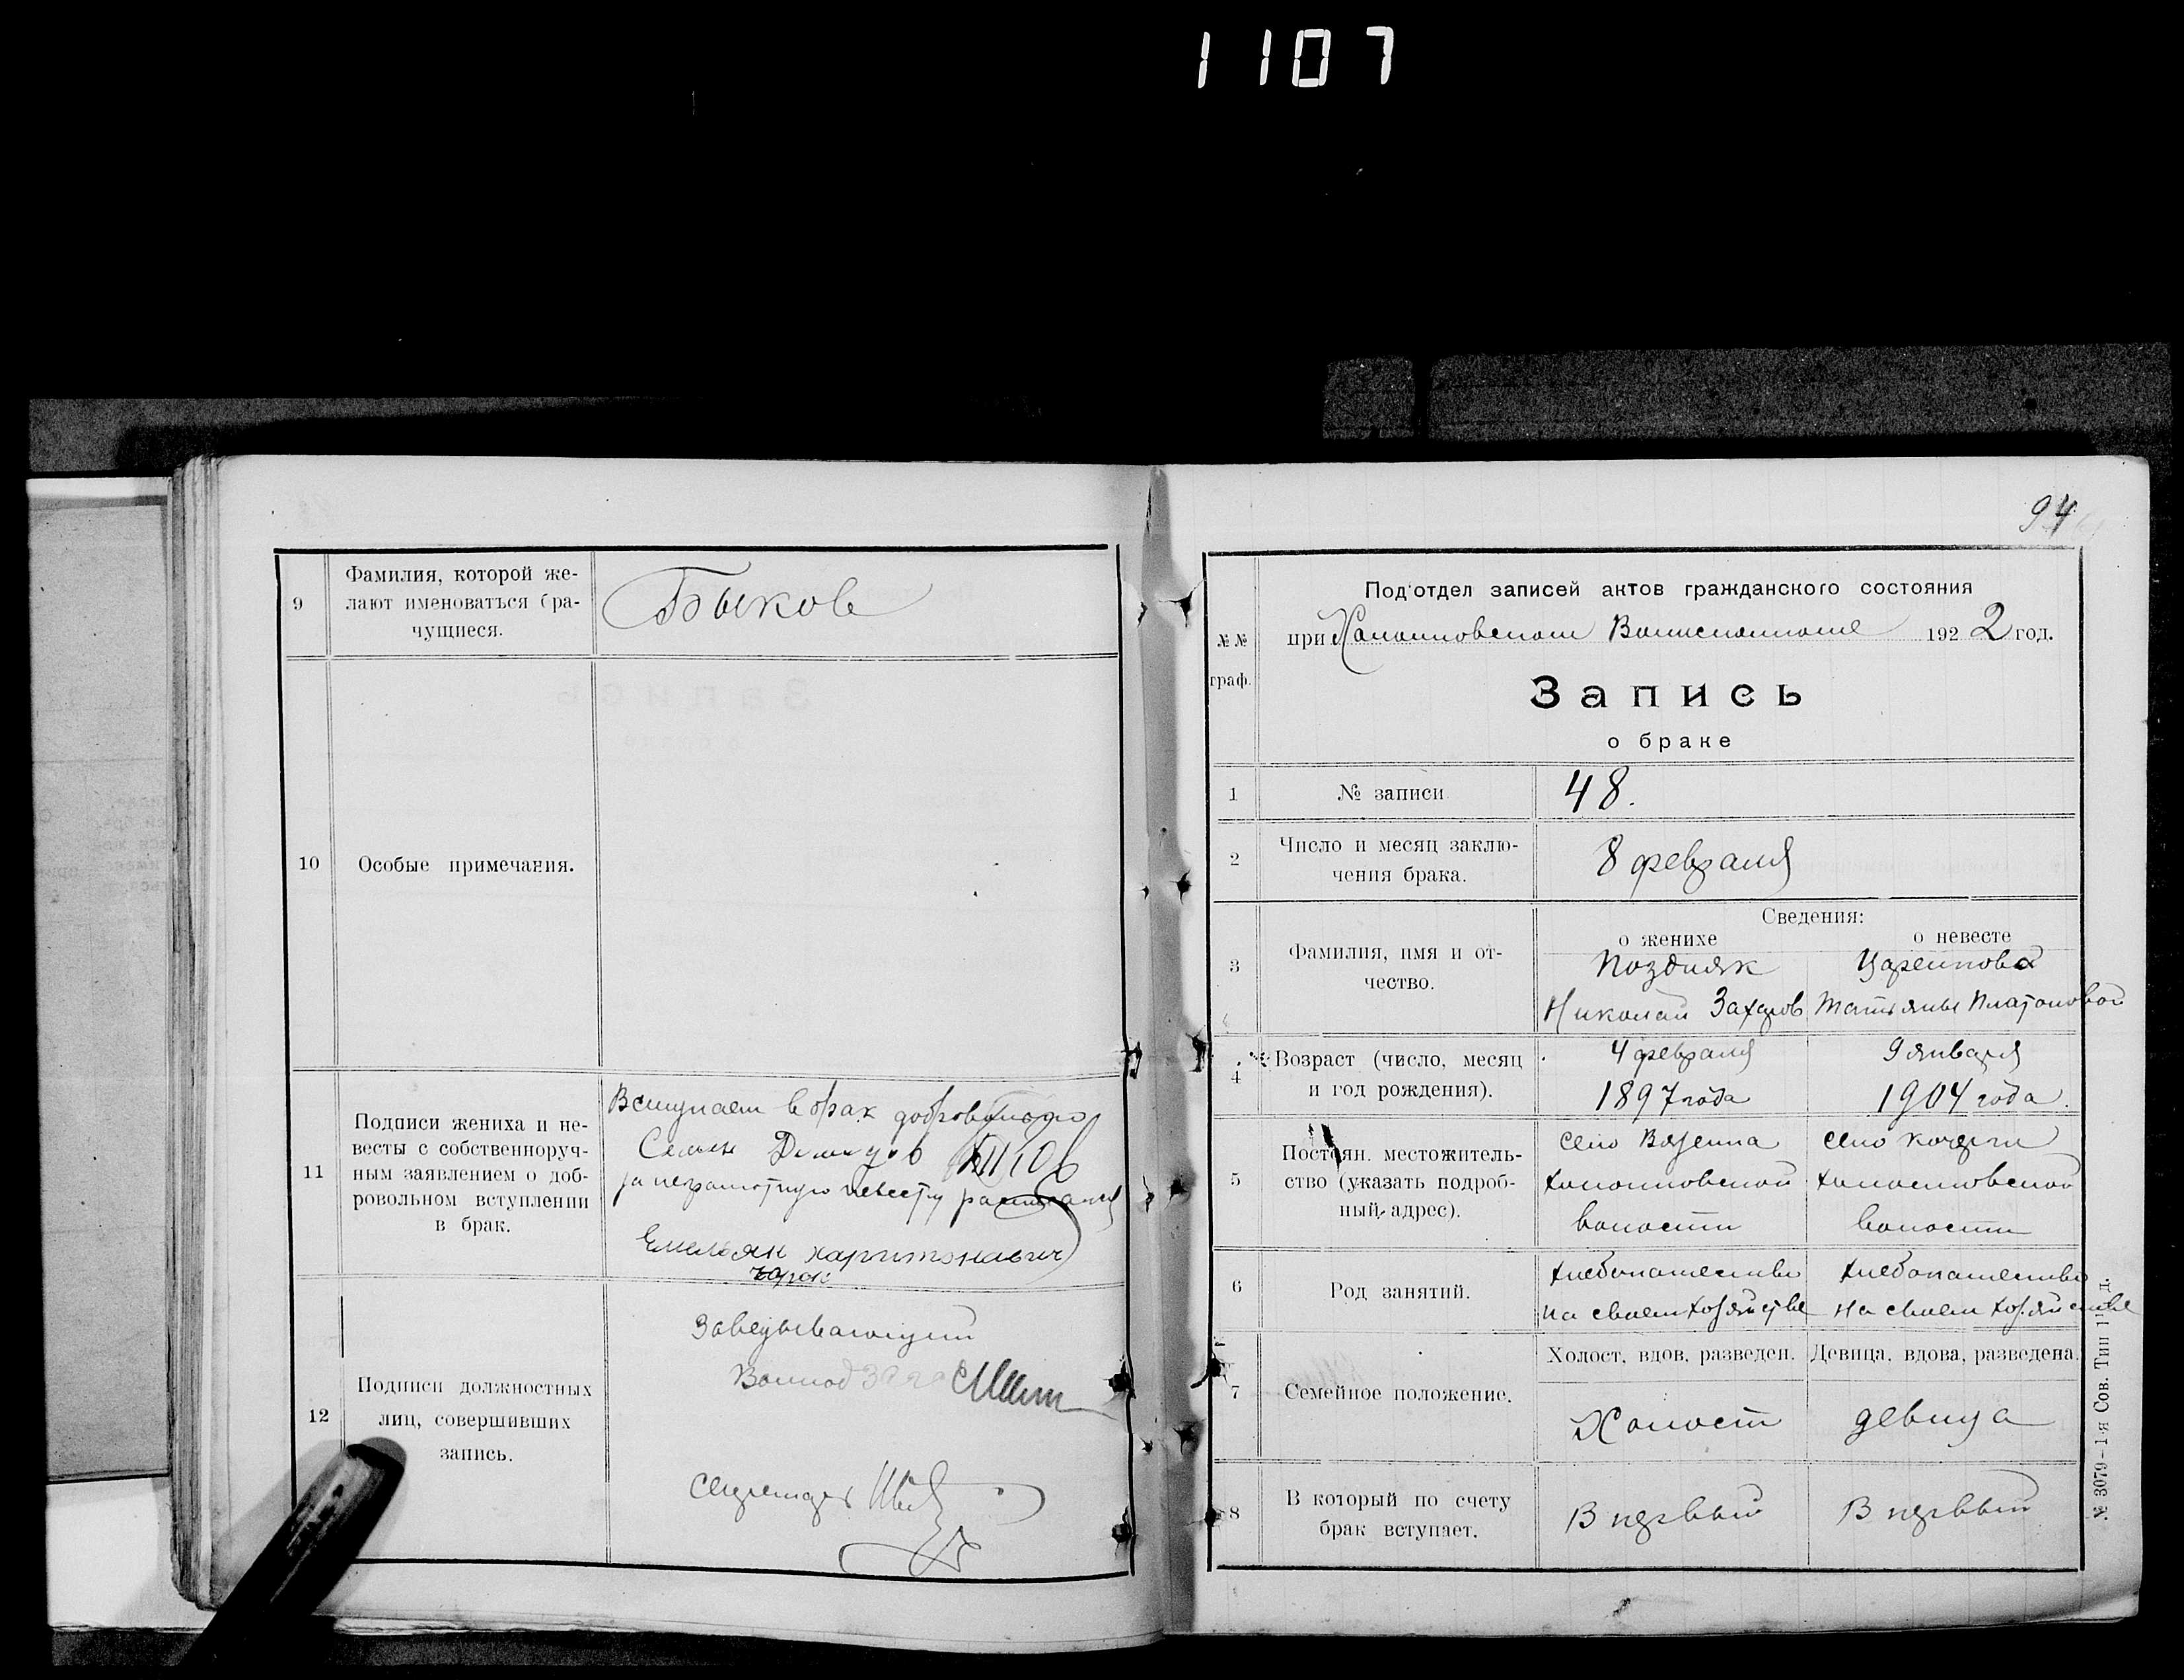 1107
9
Фамилия, которой же-
лают именоваться бра-
чущиеся.
Быков
10
Особые примечания.
11
Подписи жениха и не-
весты с собственноруч-
ным заявлением о доб-
ровольном вступлении
в брак.
Вступаем в брак добровольно
Семен
за неграмотную невесту
Емельян харитонавич
12
Подписи должностных
лиц, совершивших
запись.
Заведывающий
секретарь
94
№№
граф.
Подотдел записей актов гражданского состояния
при 1922 год.
Запись
о браке
1
№ записи
48.
2
Число и месяц заклю-
чения брака.
8 февраля
Сведения:
о женихе
о невесте
3
Фамилия, имя и от-
чество.
Поздняк
Николай Захаров
Татьяны Платоновой
4
Возраст (число, месяц
и год рождения).
4 февраля
1897 года
9 января
1904 года.
5
Постоян. местожитель-
ство (указать подроб-
ный адрес).
село
волости
село
волости
6
Род занятий.
хлебопашество
на своем хозяйстве
хлебопашество
на своем хозяйстве
7
Семейное положение.
Холост, вдов, разведен.
Девица, вдова, разведена.
Холост
девица
8
В который по счету
брак вступает.
В первый
В первый
№ 3079-1-я Сов. Тип